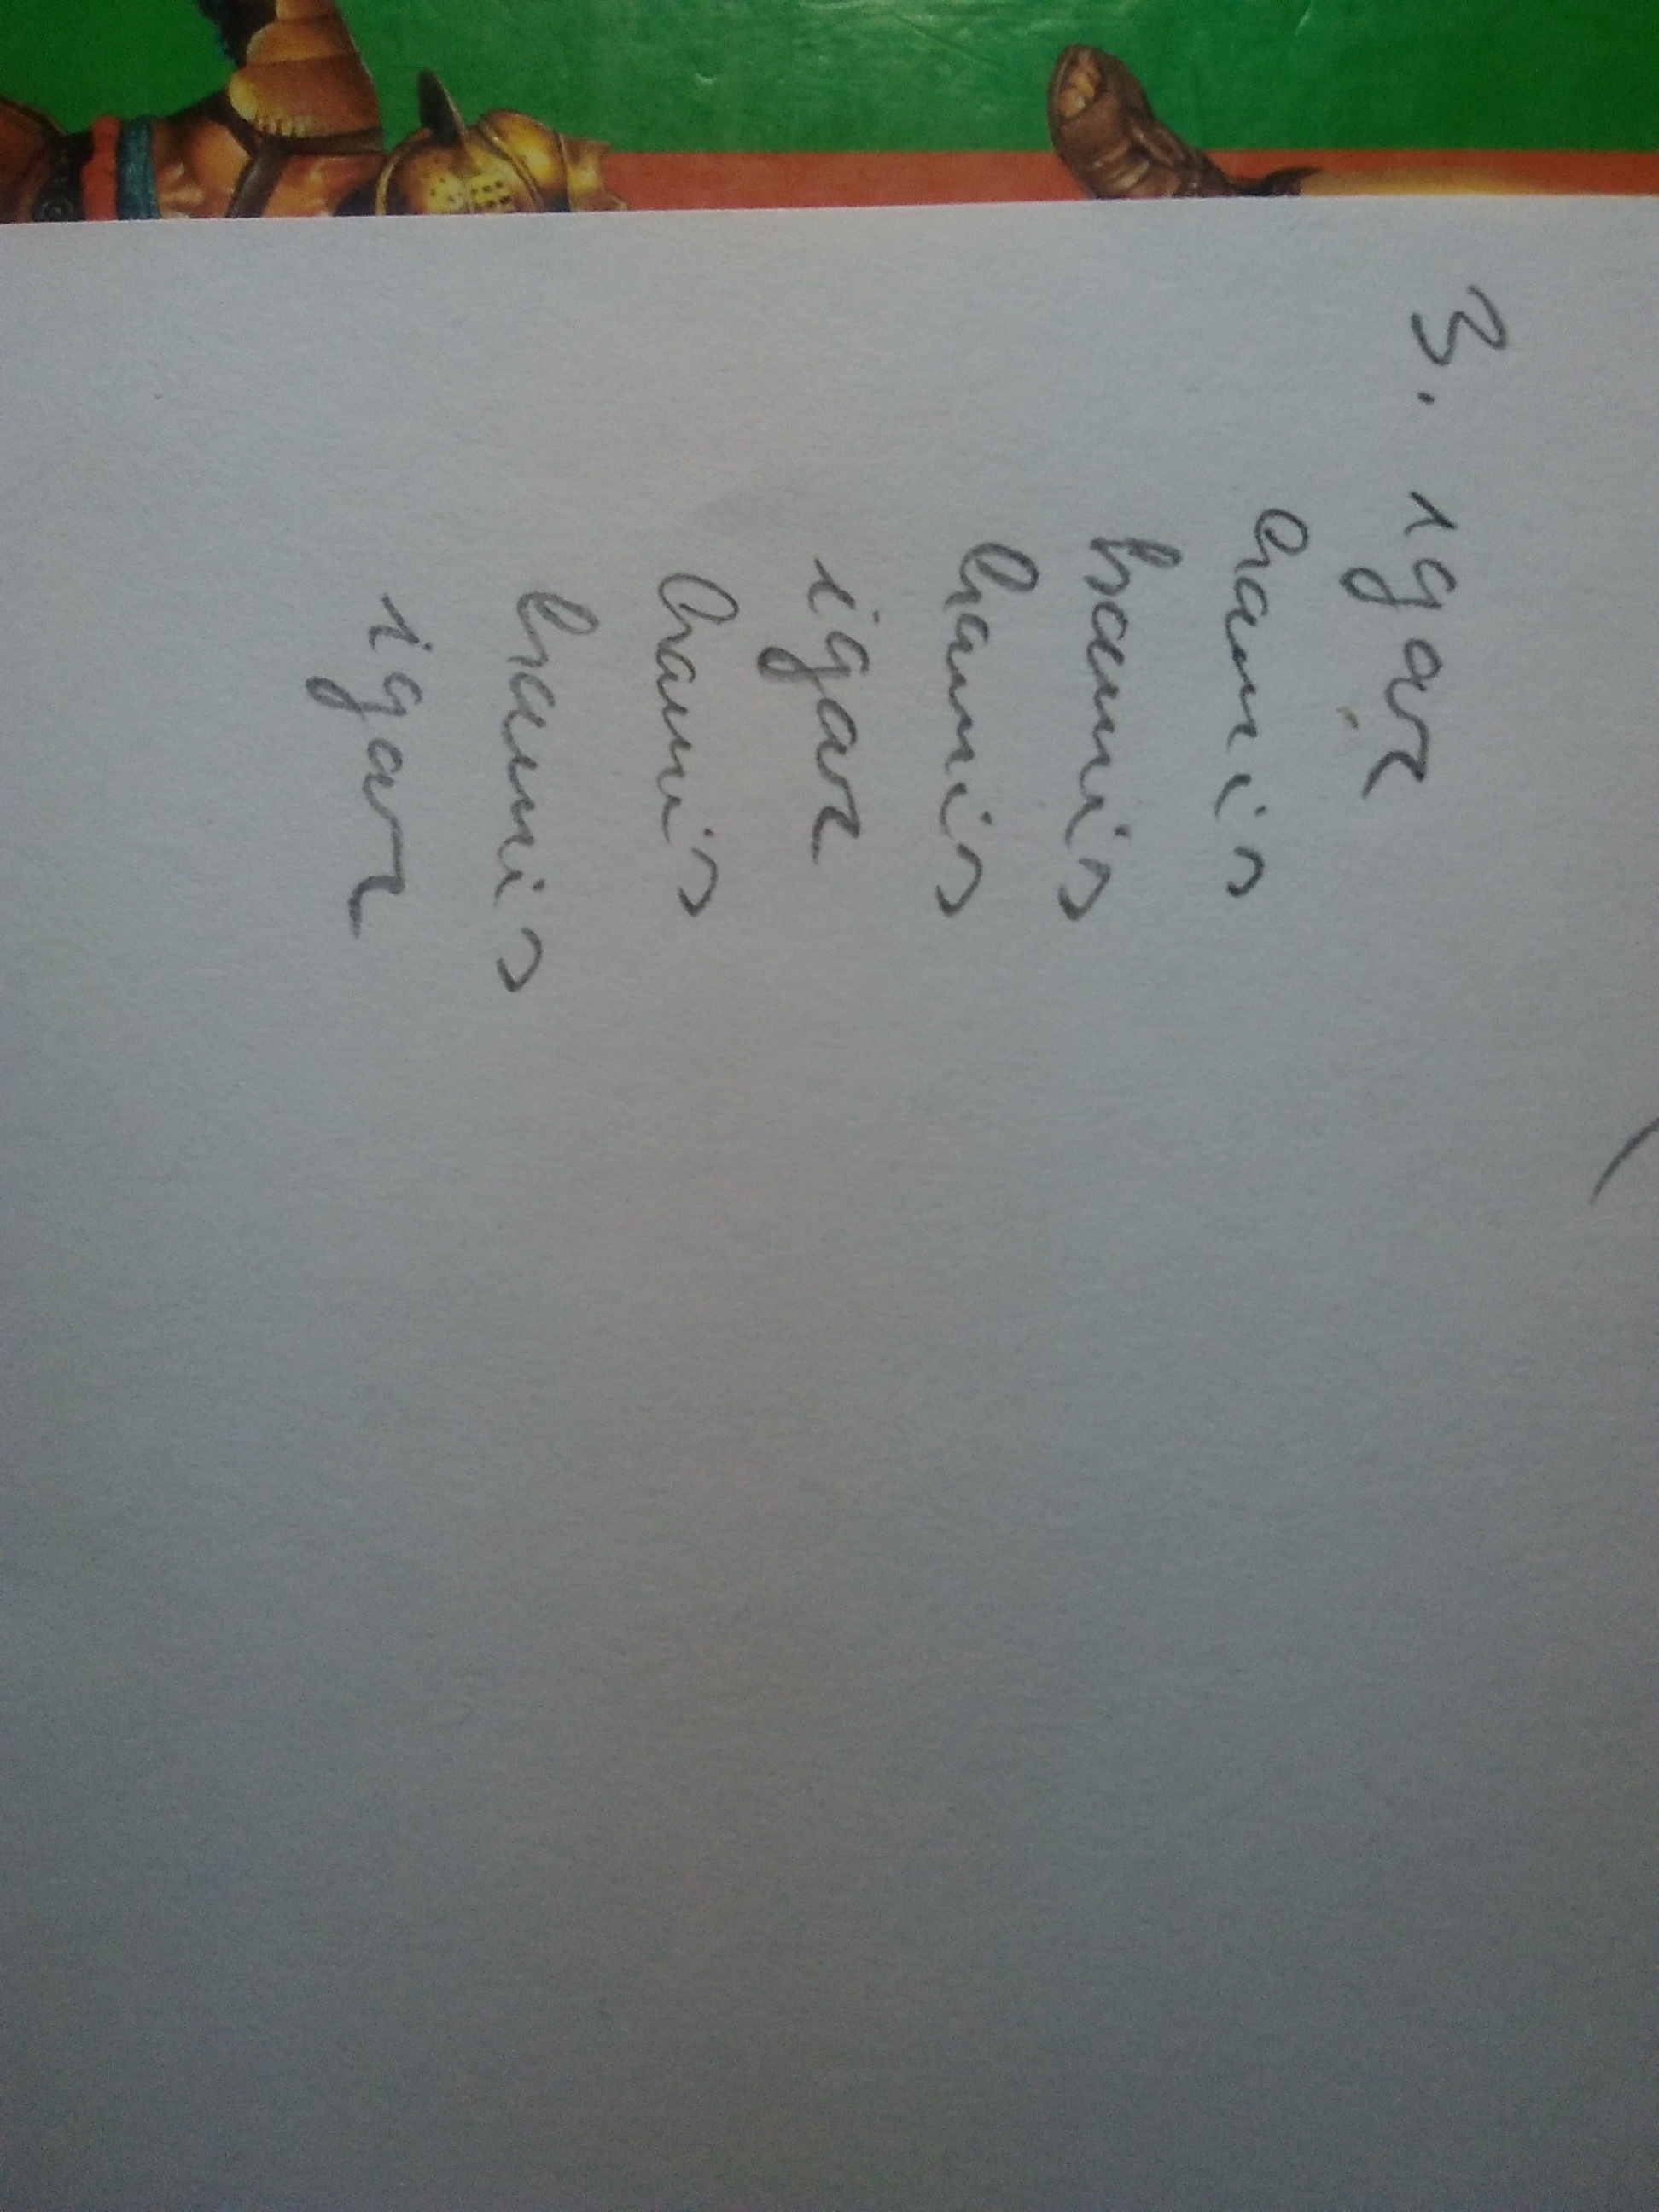 3. igaz
hamis
hamis
hamis
igaz
hamis
hamis
igaz